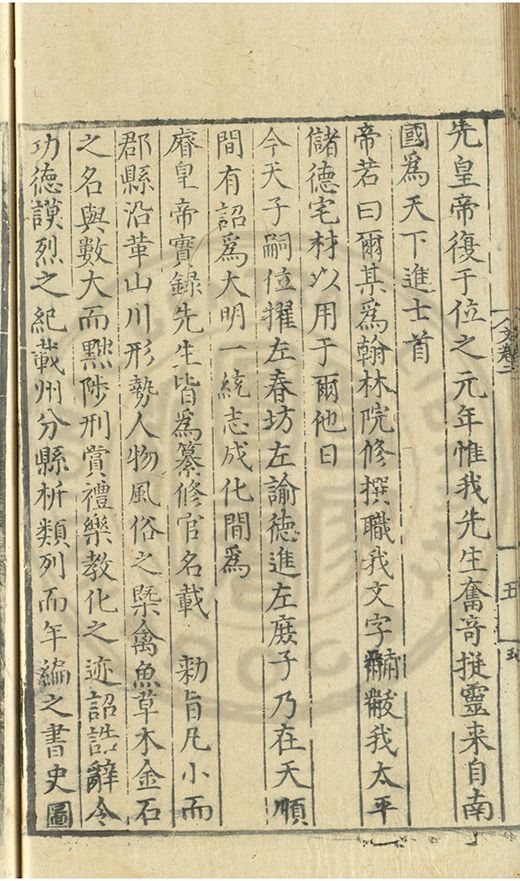 先皇帝復于位之元年惟我先生奮奇挺靈来自南
國爲天下進士首
帝若曰爾某爲翰林院修撰職我文字黼黻我太平
儲德宅材以用于爾他日
今天子嗣位擢左春坊左諭德進左庻子乃在天順
間有詔爲大明一統志成化間爲
睿皇帝實録先生皆爲纂修官名載 勑旨凡小而
郡縣沿革山川形勢人物風俗之槩禽魚草木金石
之名與數大而黜陟刑賞禮樂教化之迹詔誥辭令
功德謨烈之紀載州分縣析類列而年編之書史圖
五